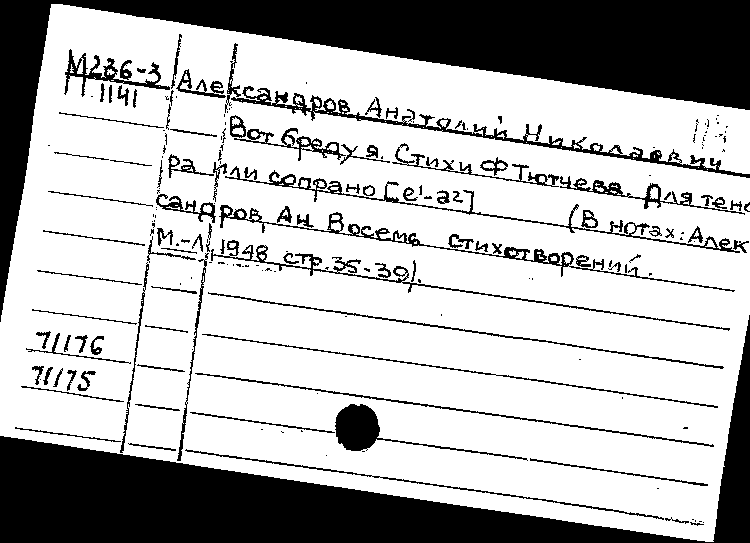 М236-3 Александров, Анатолий Николаевич
1141
Вот бреду я. Стихи Ф Тютчева. Для тено
ра или сопрано [e¹-a²]. (В нотах: Алек
сандров, Ан Восемь стихотворений.
М.-Л, 1948, стр. 35-39).
71176
71175